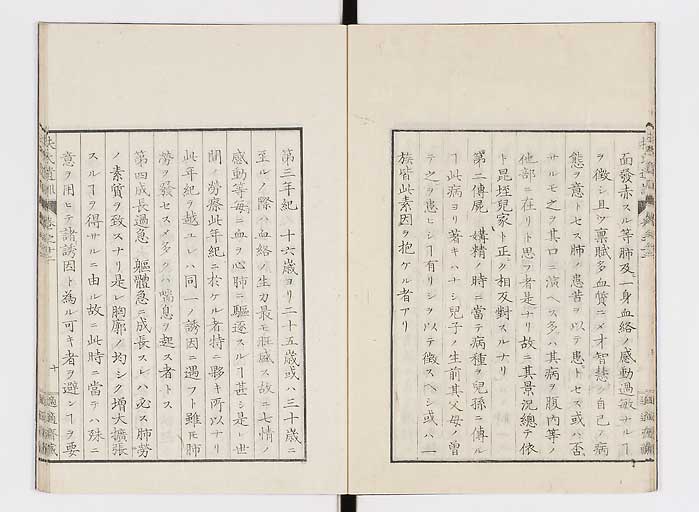 面發赤スル等肺及一身血絡ノ感動過敏ナルヿ
ヲ徴シ且ツ稟賦多血質ニメ才智慧シ自己ノ病
態ヲ意トセス肺ノ患苦ヲ以テ患トセス或ハ否
サルモ之ヲ其口ニ演ヘス多ハ其病ヲ腹内等ノ
他部ニ在リト思フ者是ナリ故ニ其景況總テ依
ト昆垤兒家ト正ク相反對スルナリ
第二傳屍 媾精ノ時ニ當テ病種ヲ兒孫ニ傳ル
ヿ此病ヨリ著キハナシ兒子ノ生前其父母ノ曽
テ之ヲ患ヒシヿ有リシヲ以テ徴スヘシ或ハ一
族皆此素因ヲ抱ケル者アリ
第三年紀 十六歳ヨリ二十五歳或ハ三十歳ニ
至ルノ際ハ血絡ノ生力最モ旺盛ス故ニ七情ノ
感動等毎ニ血ヲ心肺ニ驅逐スルヿ甚シ是レ世
間ノ勞瘵此年紀ニ於ケル者特ニ夥キ所以ナリ
此年紀ヲ越ユレハ同一ノ誘因ニ遇フト雖モ肺
勞ヲ發セスメ多クハ喘息ヲ起ス者トス
第四成長過急 軀體急ニ成長スレハ必ス肺勞
ノ素質ヲ致スナリ是レ胸廓ノ均シク増大擴張
スルヿヲ得サルニ由ル故ニ此時ニ當テハ殊ニ
意ヲ用ヒテ諸誘因ト為ル可キ者ヲ避シヿヲ要
扶氏遺訓 卷之 十 適適齋藏